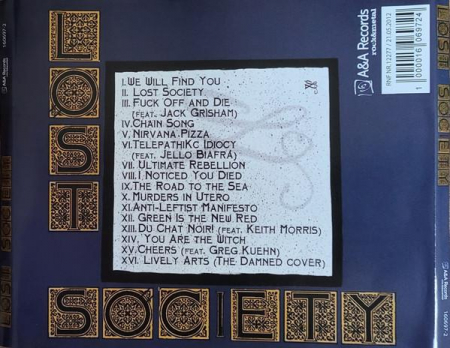 LOST
SOCIETY
I.We Will Find You
II. Lost Society
III. Fuck Off and Die
(feat. Jack Grisham)
IV.Chain Song
V. Nirvana Pizza
VI.TelepathiKc Idiocy
(feat. Jello Biafra)
VII. Ultimate Rebellion
VIII.I Noticed You Died
IX.The Road to the Sea
X.Murders in Utero
XI.Anti-Leftist Manifesto
XII. Green Is the New Red
XIII.Du Chat Noir! (feat. Keith Morris)
XIV. You Are the Witch
XV.Cheers (feat. Greg Kuehn)
XVI. Lively Arts (The Damned cover)
A&A Records
rockmetal
RNF NR 12277 / 21.05.2012
1 000016 069724
LOST SOCIETY
A&A Records
160697-2
160697-2
A&A Records